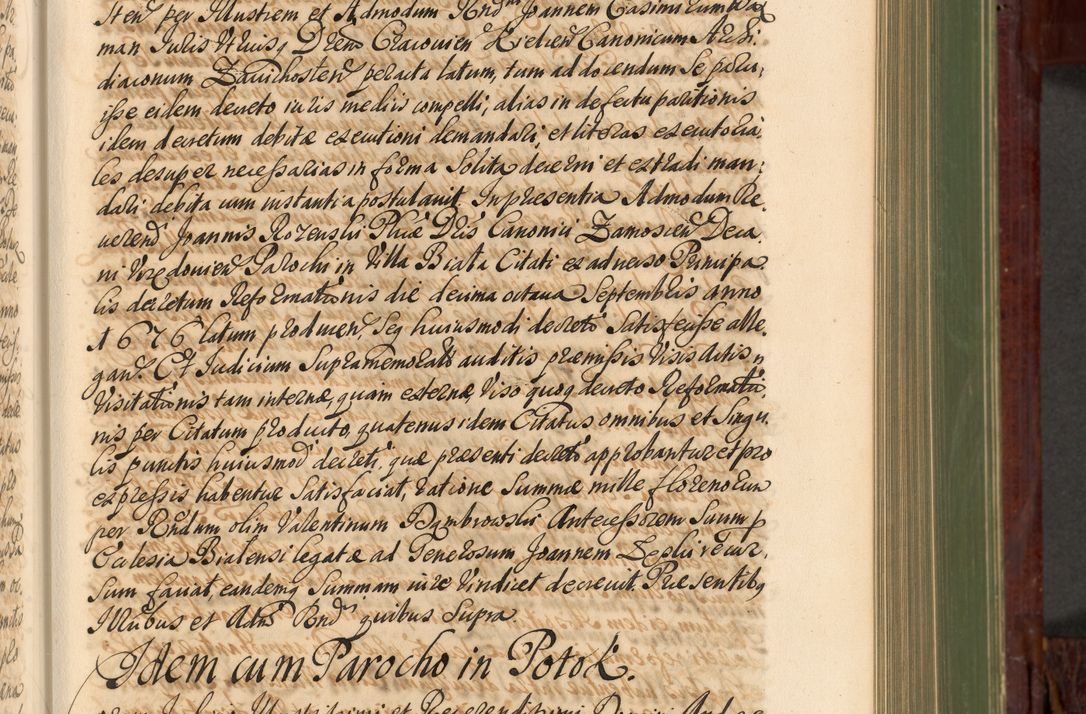 sten per Illustrem et Admodum Rndm Joannem Casimirum
man Iuris Utriusq Drem Cracovien Kielcen Canonicum Archi:
diaconum Zavichosten peracta latum, tum ad docendum se paru;
isse eidem decreto iuris mediis compelli; alias in defectu paritionis
idem decretum debitæ executioni demandari, et literas executoria:
les desuper necessarias in forma solita decerni et extradi man:
dari debita cum instantia postulavit. In presentia Admodum Re,
verend Joannis Rozenski Phiæ Dris Canonici Zamoscien Deca,
ni Urzedovien Parochi in Villa Biała Citati ex adverso Principa.
lis decretum Reformationis die decima octava Septembris anno
1676 latum producen, Seq huiusmodi decreto satisfecisse alle,
gan. Et Iudicium Supramemorat auditis præmissis visis Actis
Visitationis tam internæ, quam externæ, Viso quoq decreto Reformatio,
nis per Citatum producto, quatenus idem Citatus omnibus et Singu,
lis punctis huiusmodi decreti, quæ præsenti decreto approbantur et pro
expressis habentur Satisfaciat, ratione Summæ mille florenorum
per Rndum olim Valentinum Dymbrowski Antecessorem Suum p
Ecclesia Bialensi legatæ ad Generosum Joannem Zeslic recur,
sum faciat, eandemq Summam iure vindicet decrevit. Præsentibq
Illribus et Adm Rnd quibus Supra.
Idem cum Parocho in Potok.
et Reverendissimi Domini